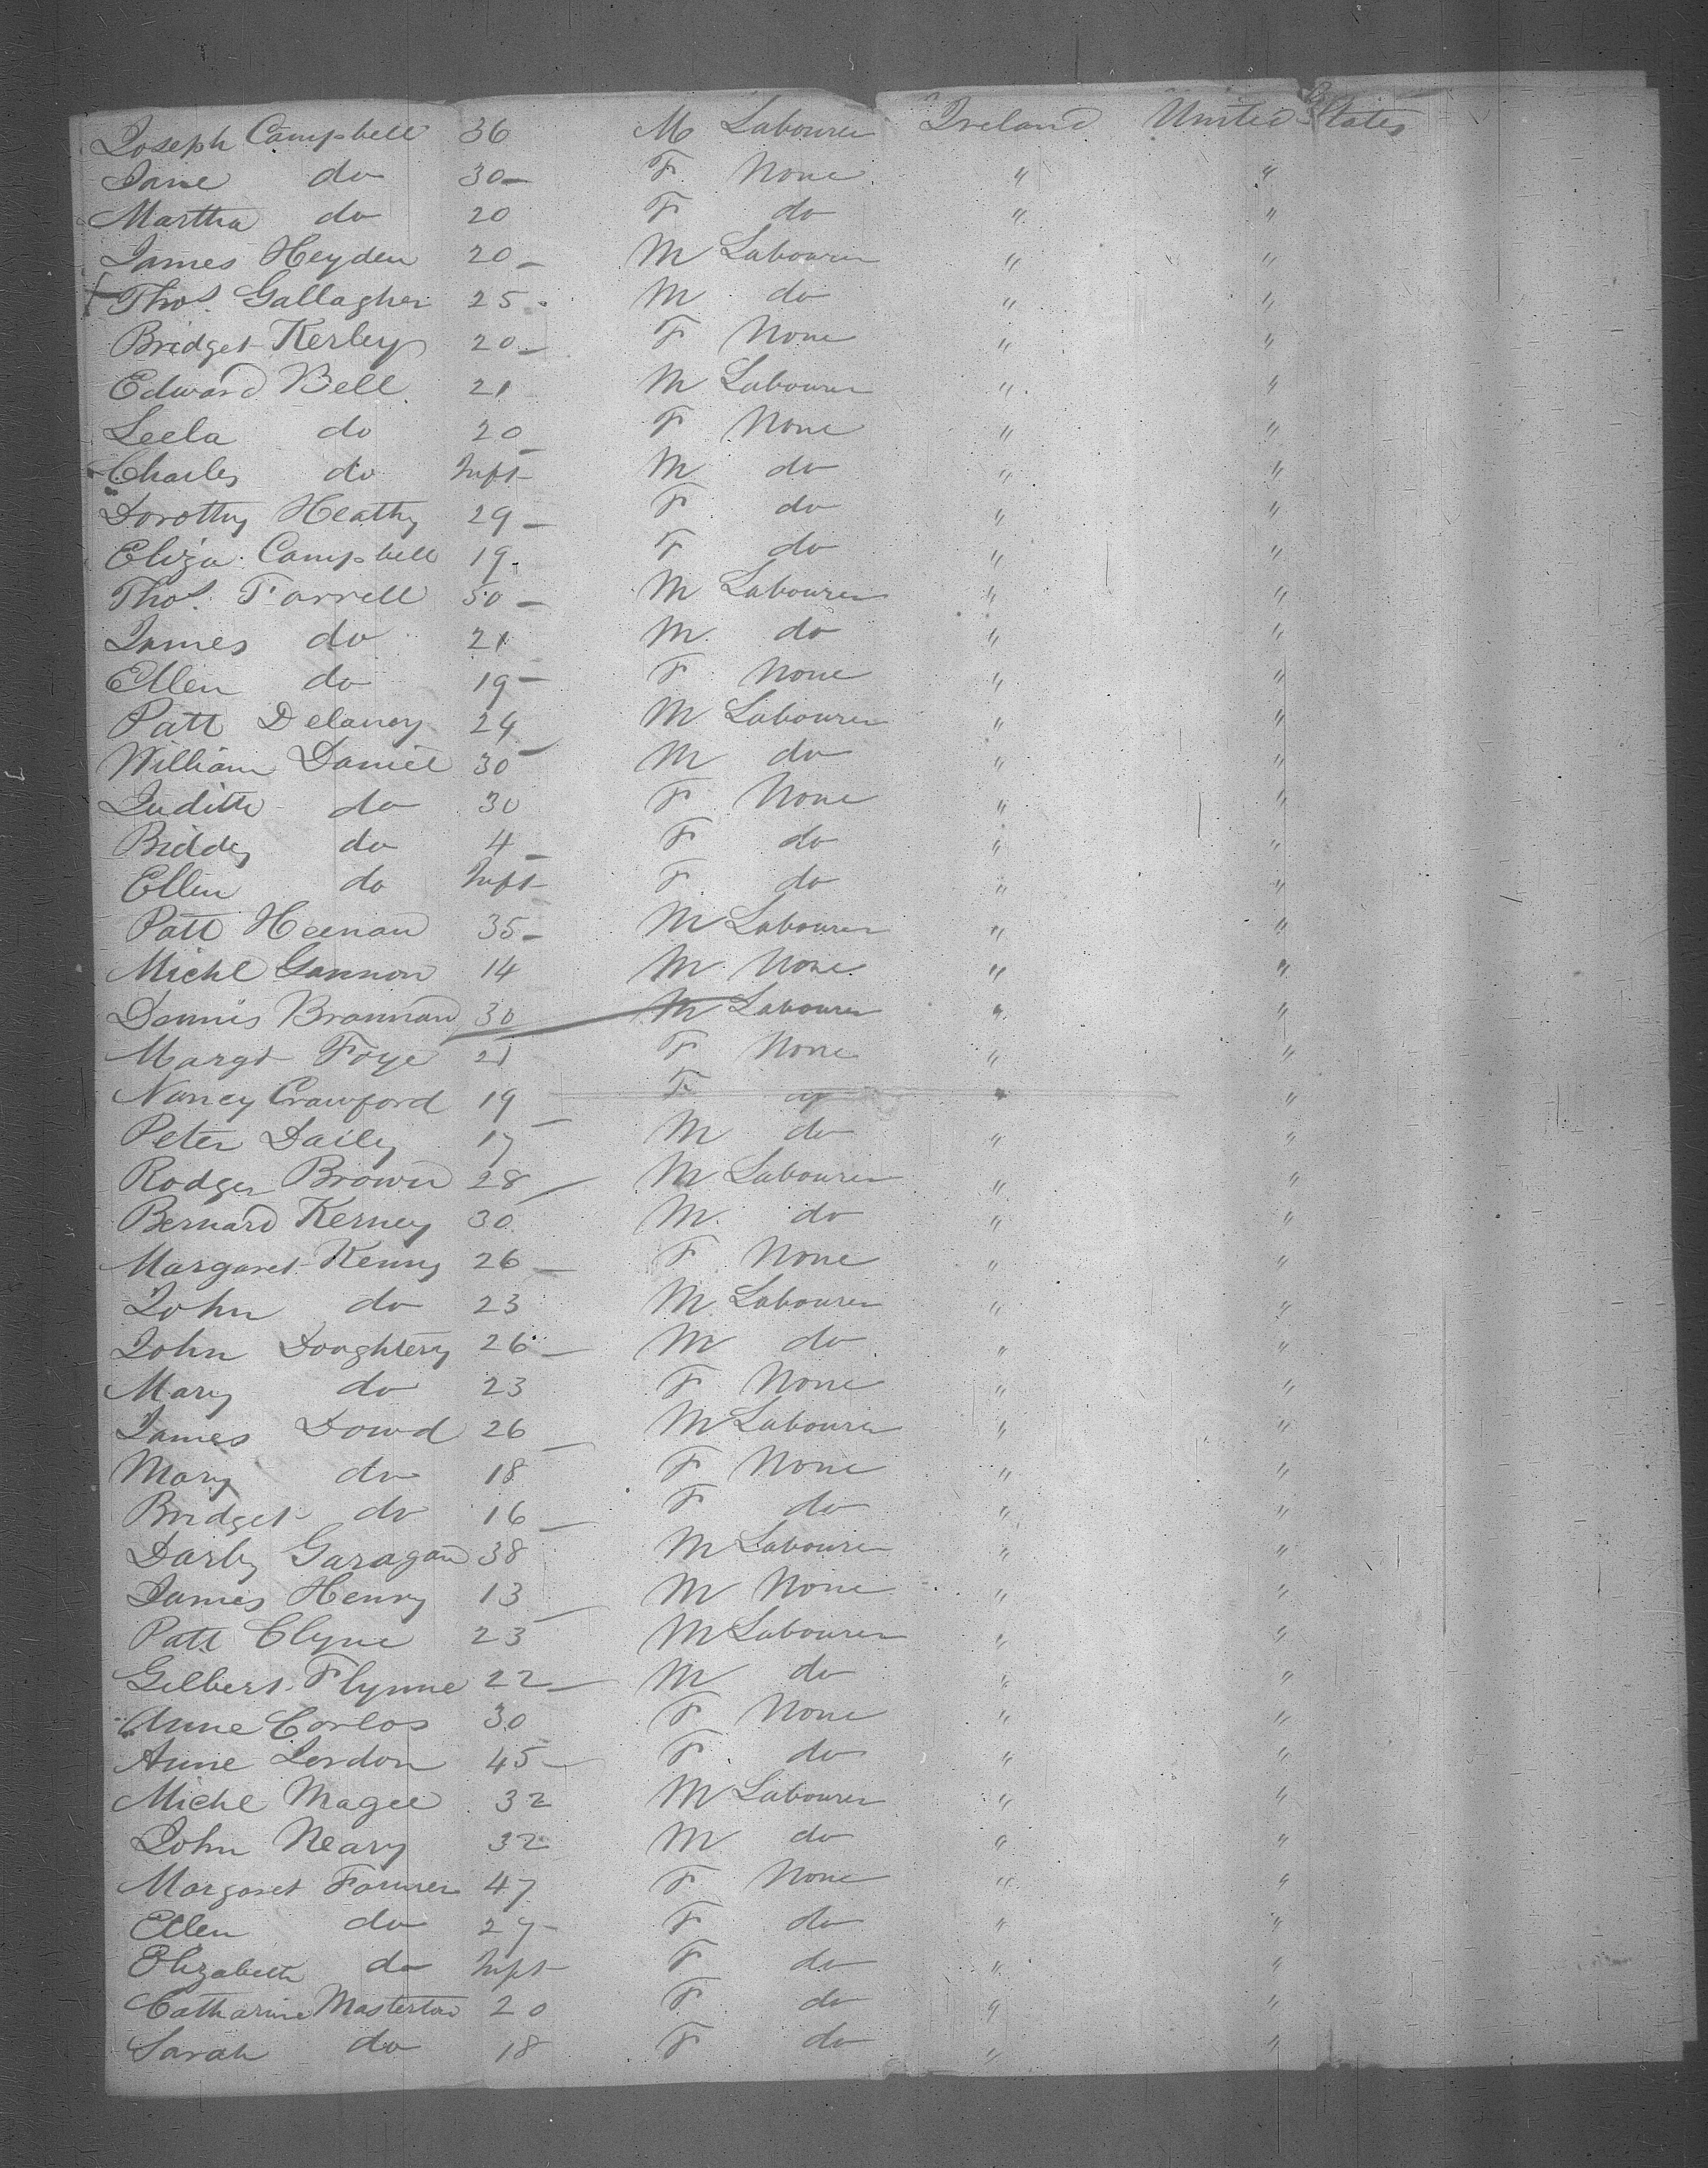 Joseph Campbell 36 M Labourer Ireland United States
Jane do 30 F None " "
Martha do 20 F do " "
James Heyden 20 M Labourer " "
Thos. Gallagher 25 M do " "
Bridget Kerley 20 F None " "
Edward Bell 21 M Labourer " "
Leela do 20 F None " "
Charles do Inft M do " "
Dorothy Heathy 29 F do " "
Eliza Campbell 19 F do " "
Thos. Farrell 50 M Labourer " "
James do 21 M do " "
Ellen do 19 F None " "
Patt Delaney 24 M Labourer " "
William Daniel 30 M do " "
Judith do 30 F None " "
Biddy do 4 F do " "
Ellen do Inft F do " "
Patt Heenan 35 M Labourer " "
Michl Gannon 14 M None " "
Dennis Brannan 30 M Labourer " "
Margt Foye 21 F None " "
Nancy Crawford 19 F do " "
Peter Daily 17 M do " "
Rodger Brown 28 M Labourer " "
Bernard Kerney 30 M do " "
Margaret Kenny 26 F None " "
John do 23 M Labourer " "
John Doughtery 26 M do " "
Mary do 23 F None " "
James Dowd 26 M Labourer " "
Mary do 18 F None " "
Bridget do 16 F do " "
Darby Garagan 38 M Labourer " "
James Henry 13 M None " "
Patt Clyne 23 M Labourer " "
Gilbert Flynne 22 M do " "
Anne Corlos 30 F None " "
Anne Lordon 45 F do " "
Michl Magee 32 M Labourer " "
John Neary 32 M do " "
Margaret Farmer 47 F None " "
Ellen do 27 F do " "
Elizabeth do Inft F do " "
Catharine Masterton 20 F do " "
Sarah do 18 F do " "